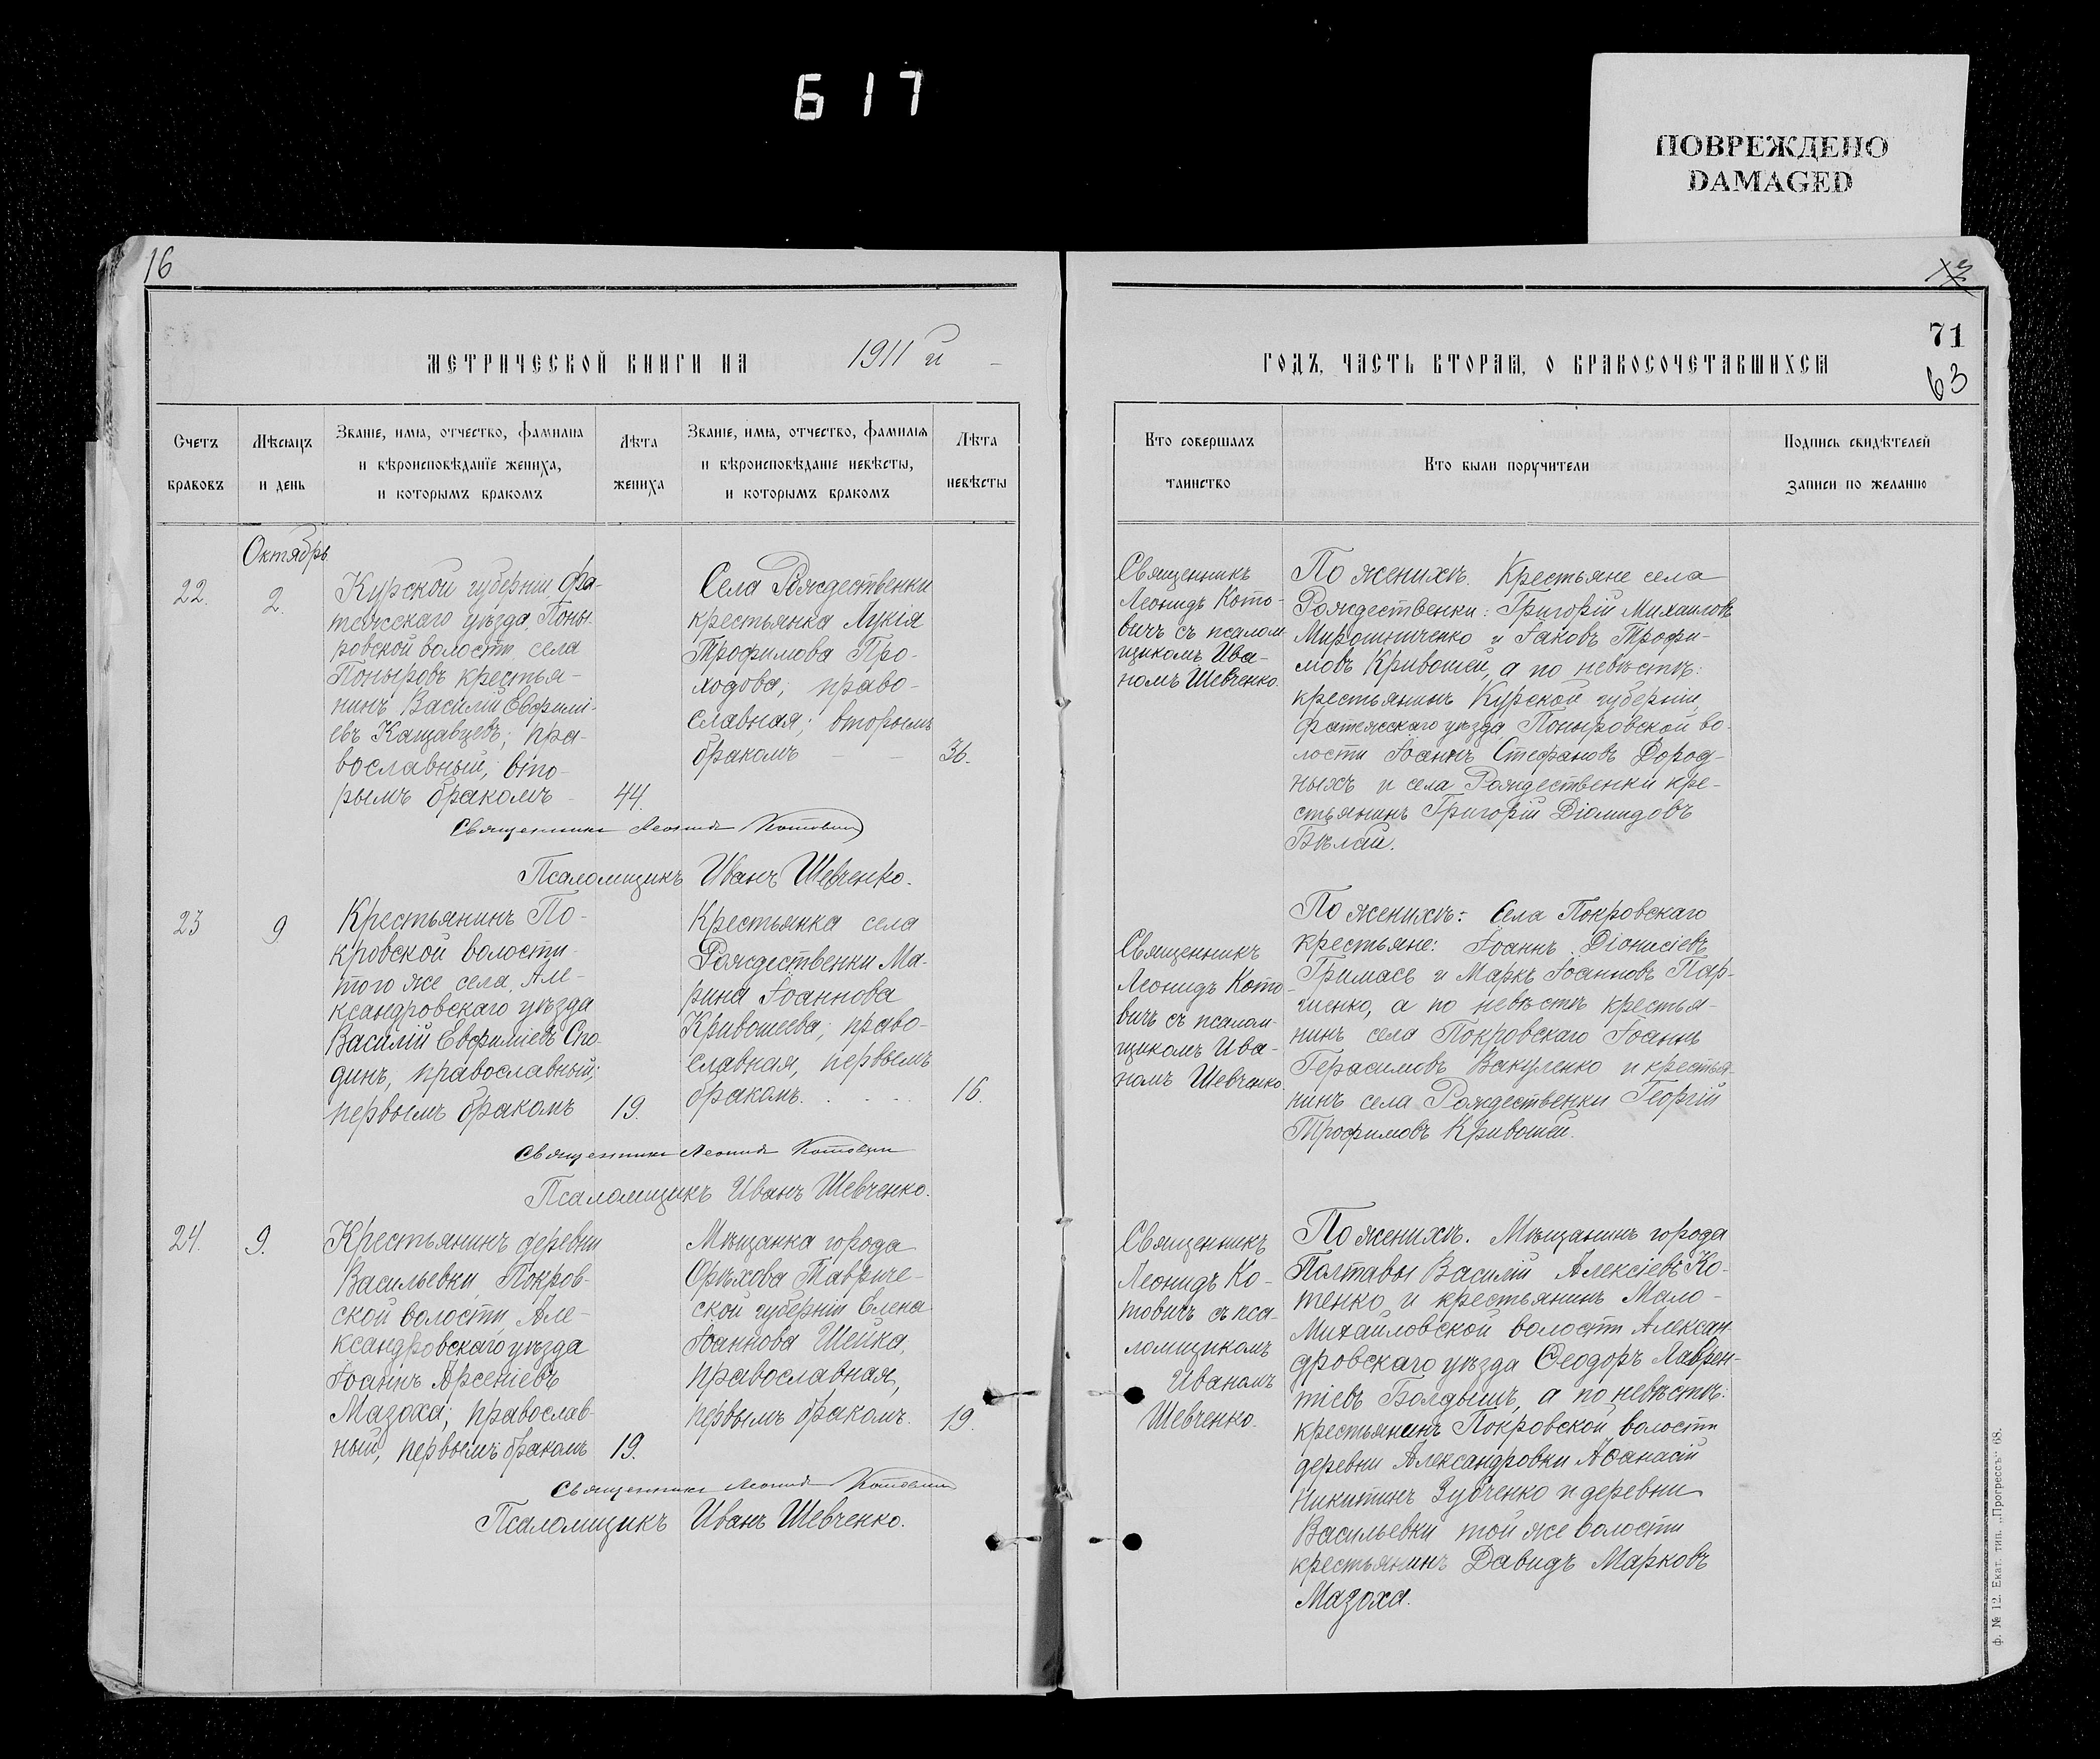 617
ПОВРЕЖДЕНО
DAMAGED
16
71
63
МЕТРИЧЕСКОЙ КНИГИ НА 1911 й
ГОДЪ, ЧАСТЬ ВТОРАЯ, О БРАКОСОЧЕТАВШИХСЯ
Счетъ
браковъ
Мѣсяцъ
и день
Званіе, имя, отчество, фамилія
и вѣроисповѣданіе жениха,
и которымъ бракомъ
Лѣта
жениха
Званіе, имя, отчество, фамилія
и вѣроисповѣданіе невѣсты,
и которымъ бракомъ
Лѣта
невѣсты
Кто совершалъ
таинство
Кто были поручители
Подпись свидѣтелей
записи по желанію
Октябрь
22.
2.
Курской губерніи, Фа-
тежскаго уѣзда, Поны-
ровской волости, села
Поныровъ крестья-
нинъ Василій Евфимі-
евъ Кащавцевъ; пра-
вославный, вто-
рымъ бракомъ
44.
Села Рождественки
крестьянка Лукія
Трофимова Про-
ходова; право-
славная; вторымъ
бракомъ
36.
Священникъ
Леонидъ Кото-
вичъ съ псалом-
щикомъ Ива-
номъ Шевченко.
По женихѣ. Крестьяне села
Рождественки: Григорій Михаиловъ
Мирошниченко и Іаковъ Трофи-
мовъ Кривошей, а по невѣстѣ:
крестьянинъ Курской губерніи,
Фатежскаго уѣзда Поныровской во-
лости Іоаннъ Стефановъ Дород-
ныхъ и села Рождественки кре-
стьянинъ Григорій Діомидовъ
Бѣлай.
Священникъ Леонидъ Котовичъ
Псаломщикъ Иванъ Шевченко.
23
9
Крестьянинъ По-
кровской волости
того же села, Але-
ксандровскаго уѣзда
Василій Евфиміевъ Спо-
динъ, православный;
первымъ бракомъ
19.
Крестьянка села
Рождественки Ма-
рина Іоаннова
Кривошеева; право-
славная, первымъ
бракомъ.
16.
Священникъ
Леонидъ Кото-
вичъ съ псалом-
щикомъ Ива-
номъ Шевченко.
По женихѣ: Села Покровскаго
крестьяне: Іоаннъ Діонисіевъ
Гримасъ и Маркъ Іоанновъ Пар-
хоменко, а по невѣстѣ крестья-
нинъ села Покровскаго Іоаннъ
Герасимовъ Вакуленко и крестья-
нинъ села Рождественки Георгій
Трофимовъ Кривошей.
Священникъ Леонидъ Котовичъ
Псаломщикъ Иванъ Шевченко.
24.
9.
Крестьянинъ деревни
Васильевки, Покров-
ской волости, Але-
ксандровскаго уѣзда
Іоаннъ Арсеніевъ
Мазоха; православ-
ный, первымъ бракомъ
19.
Мѣщанка города
Орѣхова Тавриче-
ской губерніи Елена
Іоаннова Шейка,
православная,
первымъ бракомъ.
19.
Священникъ
Леонидъ Ко-
товичъ съ пса-
ломщикомъ
Иваномъ
Шевченко.
По женихѣ. Мѣщанинъ города
Полтавы Василій Алексіевъ Ко-
тенко и крестьянинъ Мало-
Михайловской волости Алексан-
дровскаго уѣзда Ѳеодоръ Лаврен-
тіевъ Болдышъ, а по невѣстѣ:
крестьянинъ Покровской волости
деревни Александровки Аѳанасій
Никитинъ Зубченко и деревни
Васильевки той же волости
крестьянинъ Давидъ Марковъ
Мазоха.
Священникъ Леонидъ Котовичъ
Псаломщикъ Иванъ Шевченко.
Ф. № 12. Екат. тип. „Прогрессъ" 68.